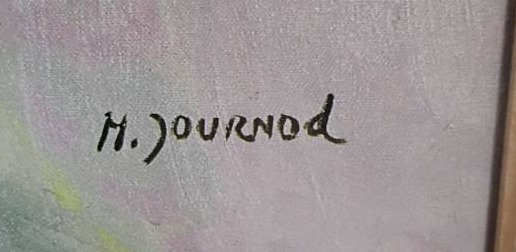 M. JOURNOd